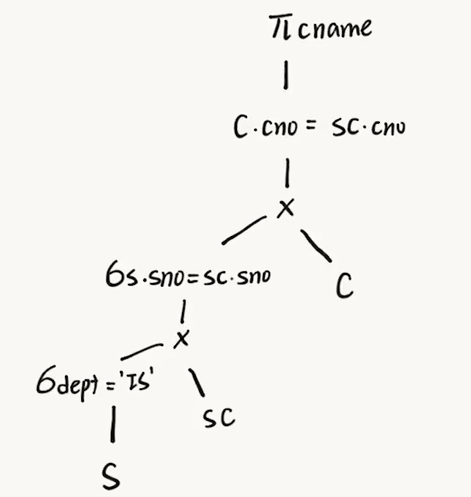 π cname
C.cno = SC.cno
×
σs.sno=sc.sno
C
×
σdept='IS'
SC
S